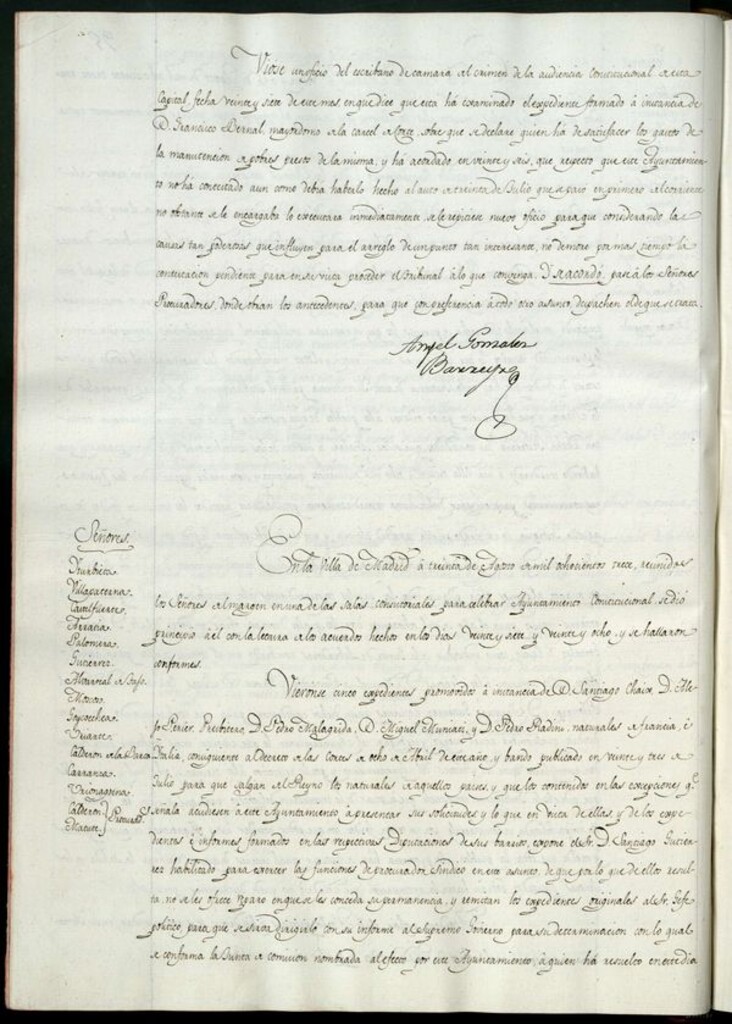 Viose un oficio del escribano de camara del crimen de la audiencia Constitucional de esta
Capital, fecha veinte y siete de este mes, en que dice que esta há examinado el expediente formado á instancia de
D. Francisco Bernal, mayordomo de la carcel de Corte, sobre que se declare quien há de satisfacer los gastos de
la manutencion de pobres presos de la misma, y há acordado en veinte y seis, que respecto que este Ayuntamien-
to no há contestado aun como debia haberlo hecho al auto de treinta de Julio que se paso en primero del corriente
no obstante se le encargaba lo executára inmediatamente, se le repitiese nuevo oficio para que considerando las
causas tan poderosas que influyen para el arreglo de un punto tan interesante, no demore por mas tiempo la
contestacion pendiente para en su vista proceder el tribunal á lo que convenga. Y se acordó, pase á los Señores
Procuradores, donde obran los antecedentes, para que con preferencia á todo otro asunto, despachen el de que se trata.
Angel Gonzalez
Barreyro
Señores.
Yturbieta.
Villapaterna.
Castelfuerte.
Terraria.
Palomera.
Gutierrez.
Altarreal de Stafo.
Montes.
Goycoechea.
Uriarte.
Calderon de la Barca
Carranza.
Urionagoena.
Calderon.
Matute.
Procurs.
En la Villa de Madrid á treinta de Agosto de mil ochocientos trece, reunidos
los Señores del margen en una de las salas consistoriales para celebrar Ayuntamiento Constitucional, se dió
principio á él con la lectura de los acuerdos hechos en los dias veinte y siete y veinte y ocho, y se hallaron
conformes.
Vieronse cinco expedientes promovidos á instancia de D. Santiago Chaix, D. Ale-
jo Perier, Presbitero, D. Pedro Malagada, D. Miguel Muniati, y D. Pedro Radini, naturales de francia, é
Italia, consiguiente al decreto de las Cortes de ocho de Abril de este año, y bando publicado en veinte y tres de
Julio para que salgan del Reyno los naturales de aquellos paises, y que los contenidos en las excepciones qe.
señala acudiesen á este Ayuntamiento á presentar sus solicitudes y lo que en vista de ellas, y de los expe-
dientes é informes formados en las respectivas Diputaciones de sus barrios, expone el Sr. D. Santiago Gutier-
rez habilitado para exercer las funciones de procurador Sindico en este asunto, de que por lo que de ellos resul-
ta, no se les ofrece reparo en que se les conceda su permanencia, y remitan los expedientes originales al Sr. Gefe
politico, para que se sirva dirigirlo con su informe al supremo Govierno para su determinacion con lo qual
se conforma la Junta de comision nombrada al efecto por este Ayuntamiento, á quien há resuelto en este dia